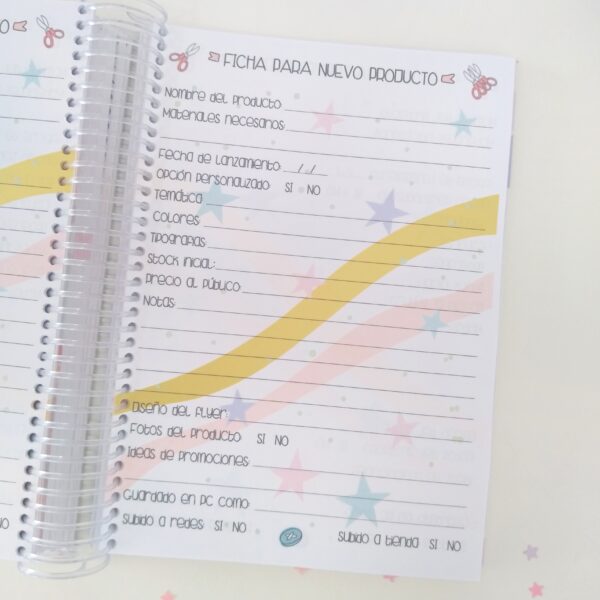 FICHA PARA NUEVO PRODUCTO
Nombre del producto
Materiales necesarios:
Fecha de Lanzamiento: / /
Opción personalizado SI NO
Temática
Colores
Tipografías
Stock inicial:
Precio al público:
Notas:
Diseño del Flyer:
Fotos del producto SI NO
Ideas de promociones
Guardado en PC como:
Subido a redes SI NO
Subido a tienda SI NO